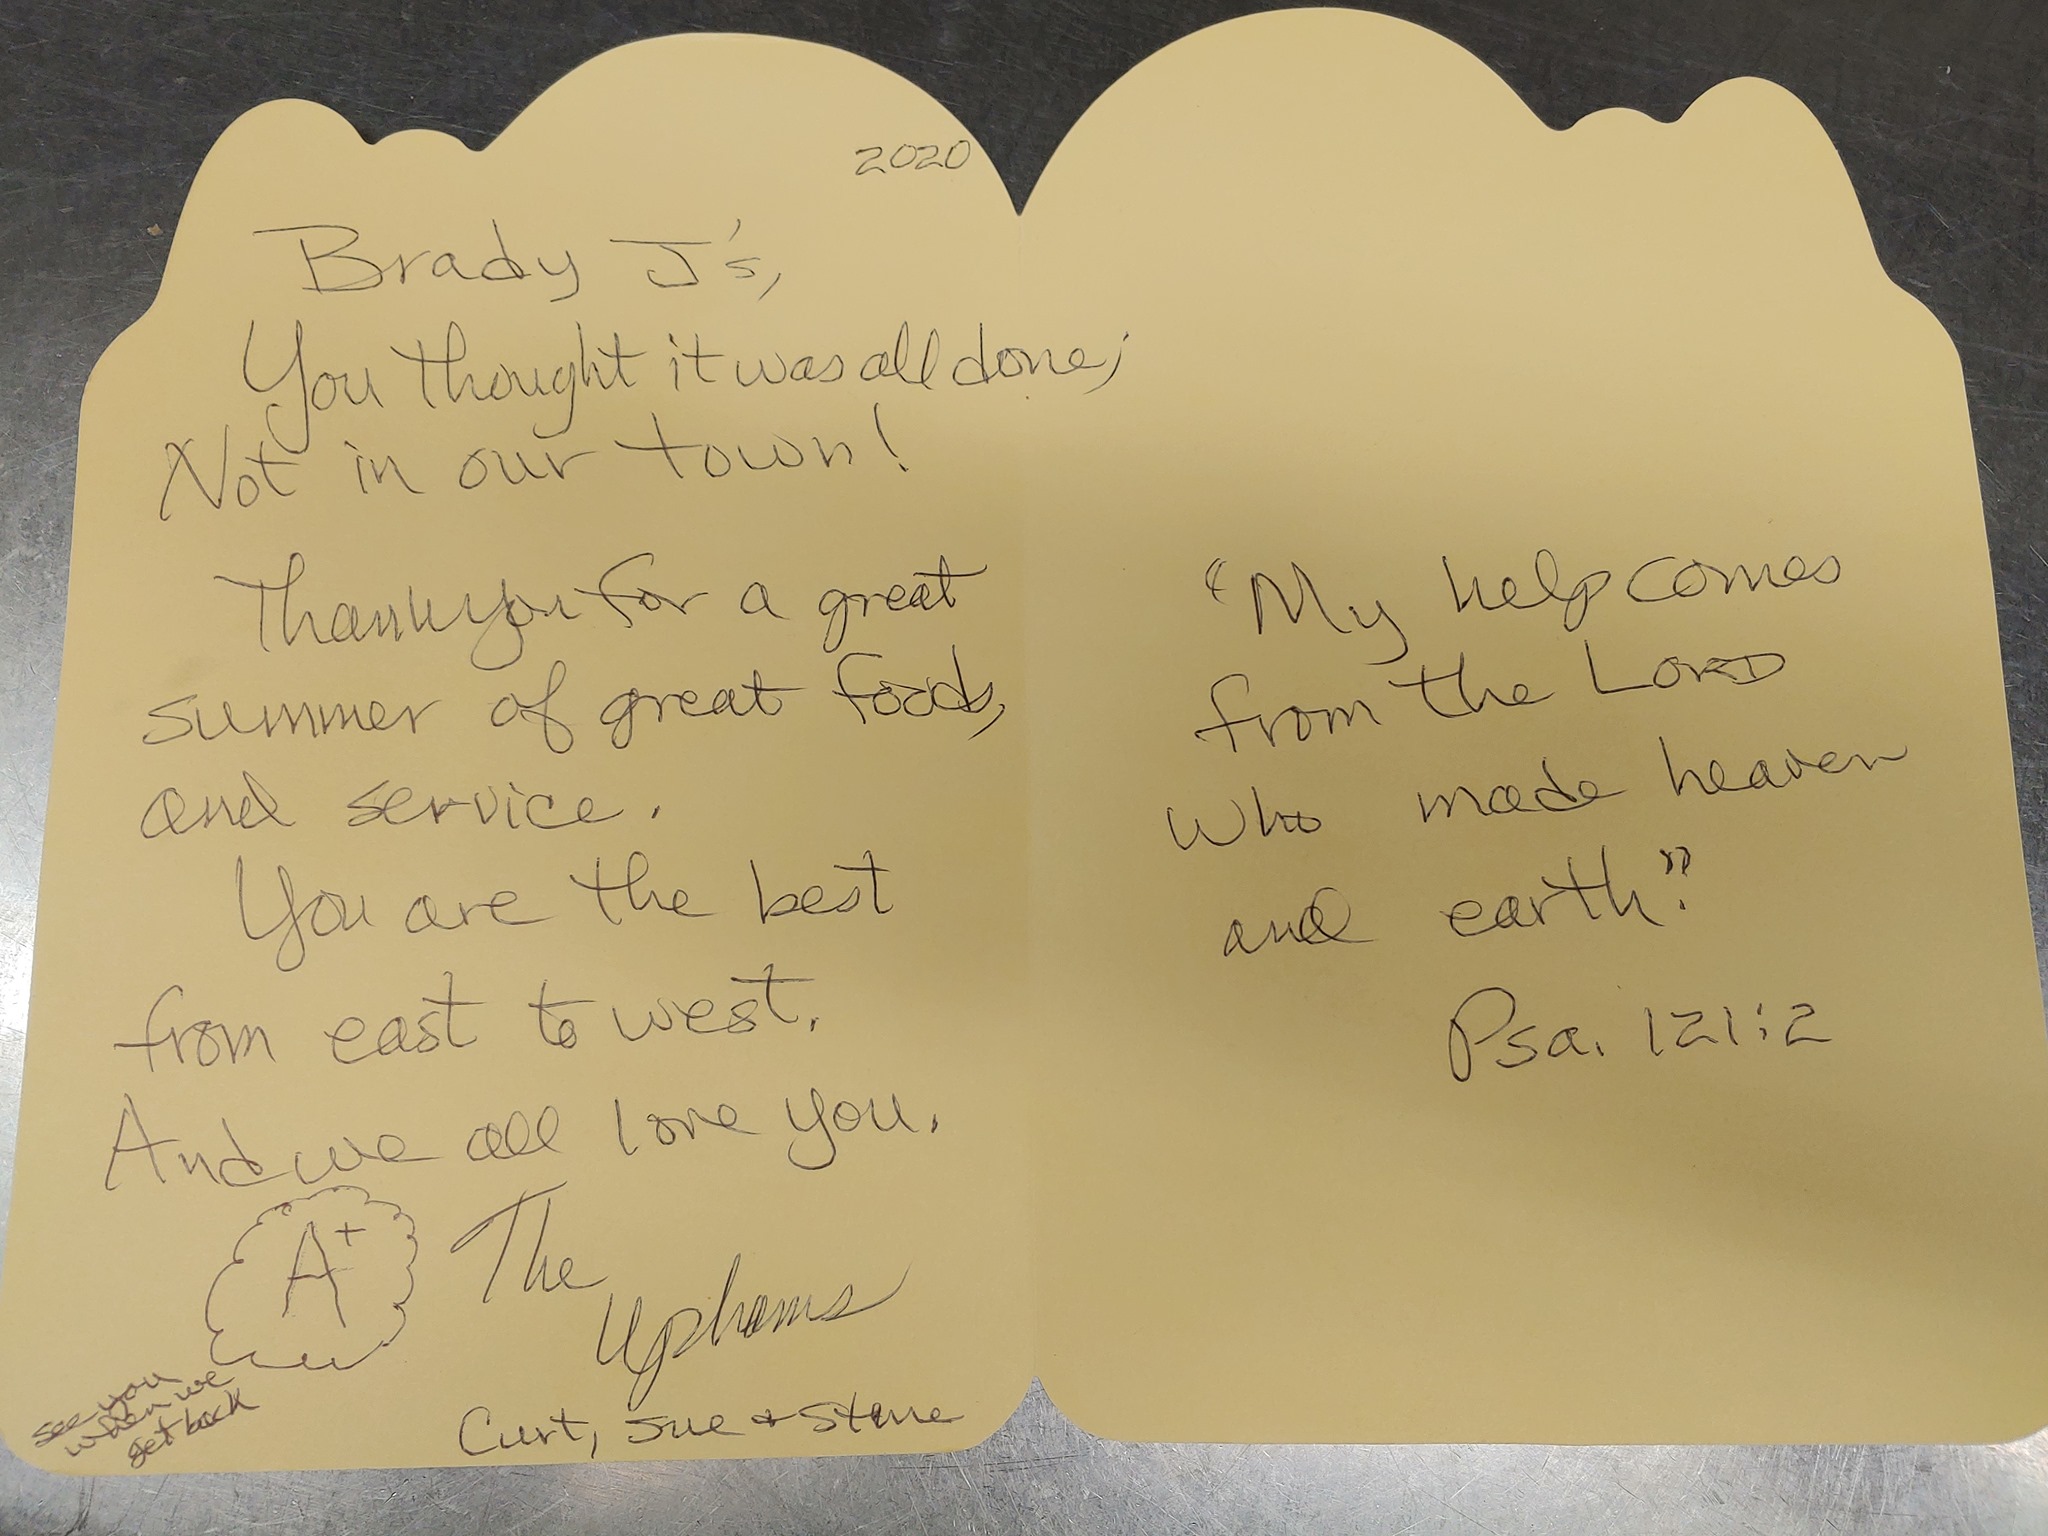 2020
Brady J's,
You thought it was all done;
Not in our town!
Thank you for a great
summer of great foods,
and service.
You are the best
from east to west.
And we all love you.
A+
The
Uphams
Curt, Sue + Steve
see you
when we
get back
"My help comes
from the LORD
who made heaven
and earth."
Psa. 121:2